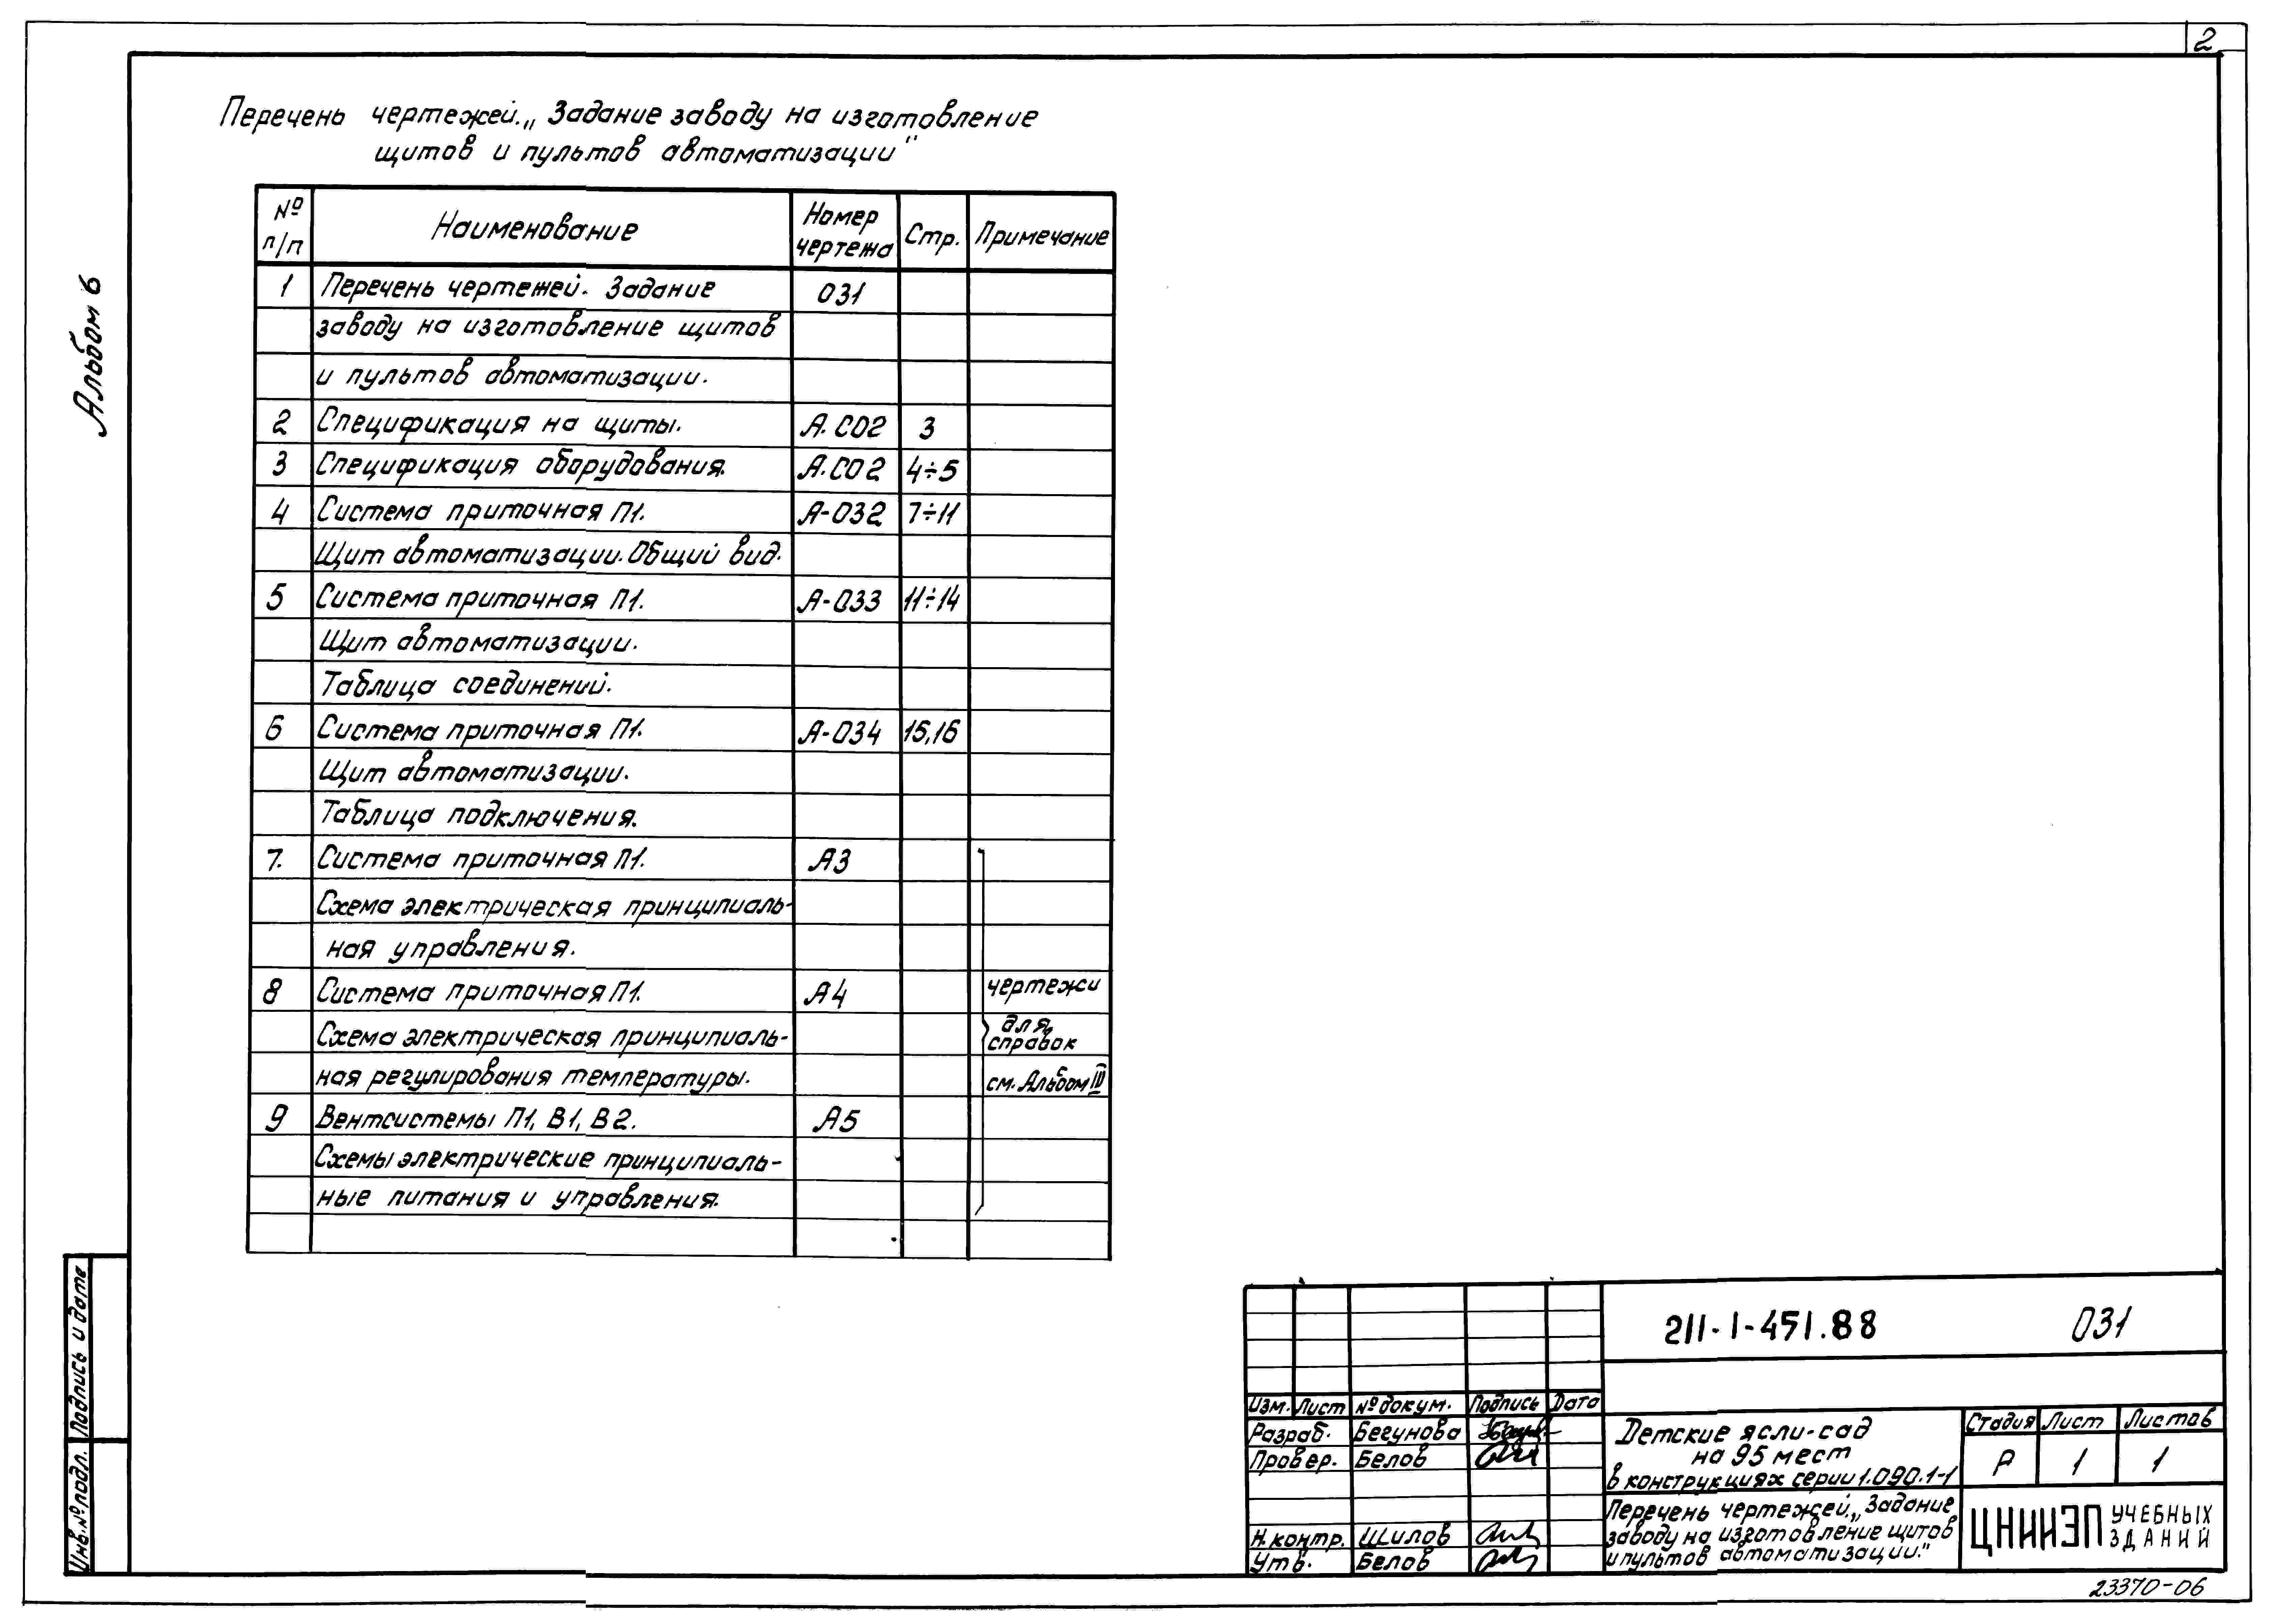 2
Перечень чертежей. „Задание заводу на изготовление
щитов и пультов автоматизации"
Альбом 6
№ п/п Наименование Номер чертежа Стр. Примечание
1 Перечень чертежей. Задание 031
заводу на изготовление щитов
и пультов автоматизации.
2 Спецификация на щиты. А.СО2 3
3 Спецификация оборудования. А.СО2 4÷5
4 Система приточная П1. А-032 7÷11
Щит автоматизации. Общий вид.
5 Система приточная П1. А-033 11÷14
Щит автоматизации.
Таблица соединений.
6 Система приточная П1. А-034 15,16
Щит автоматизации.
Таблица подключения.
7. Система приточная П1. А3
Схема электрическая принципиаль-
ная управления.
8 Система приточная П1. А4 чертежи
Схема электрическая принципиаль- для справок
ная регулирования температуры. см. Альбом III
9 Вентсистемы П1, В1, В2. А5
Схемы электрические принципиаль-
ные питания и управления.
Подпись и дата
Инв.№ подл.
211-1-451.88 031
Изм. Лист № докум. Подпись Дата
Разраб. Бегунова
Провер. Белов
Н.контр. Шилов
Утв. Белов
Детские ясли-сад
на 95 мест
в конструкциях серии 1.090.1-1
Стадия Лист Листов
Р 1 1
Перечень чертежей. „Задание
заводу на изготовление щитов
и пультов автоматизации."
ЦНИИЭП УЧЕБНЫХ ЗДАНИЙ
23370-06